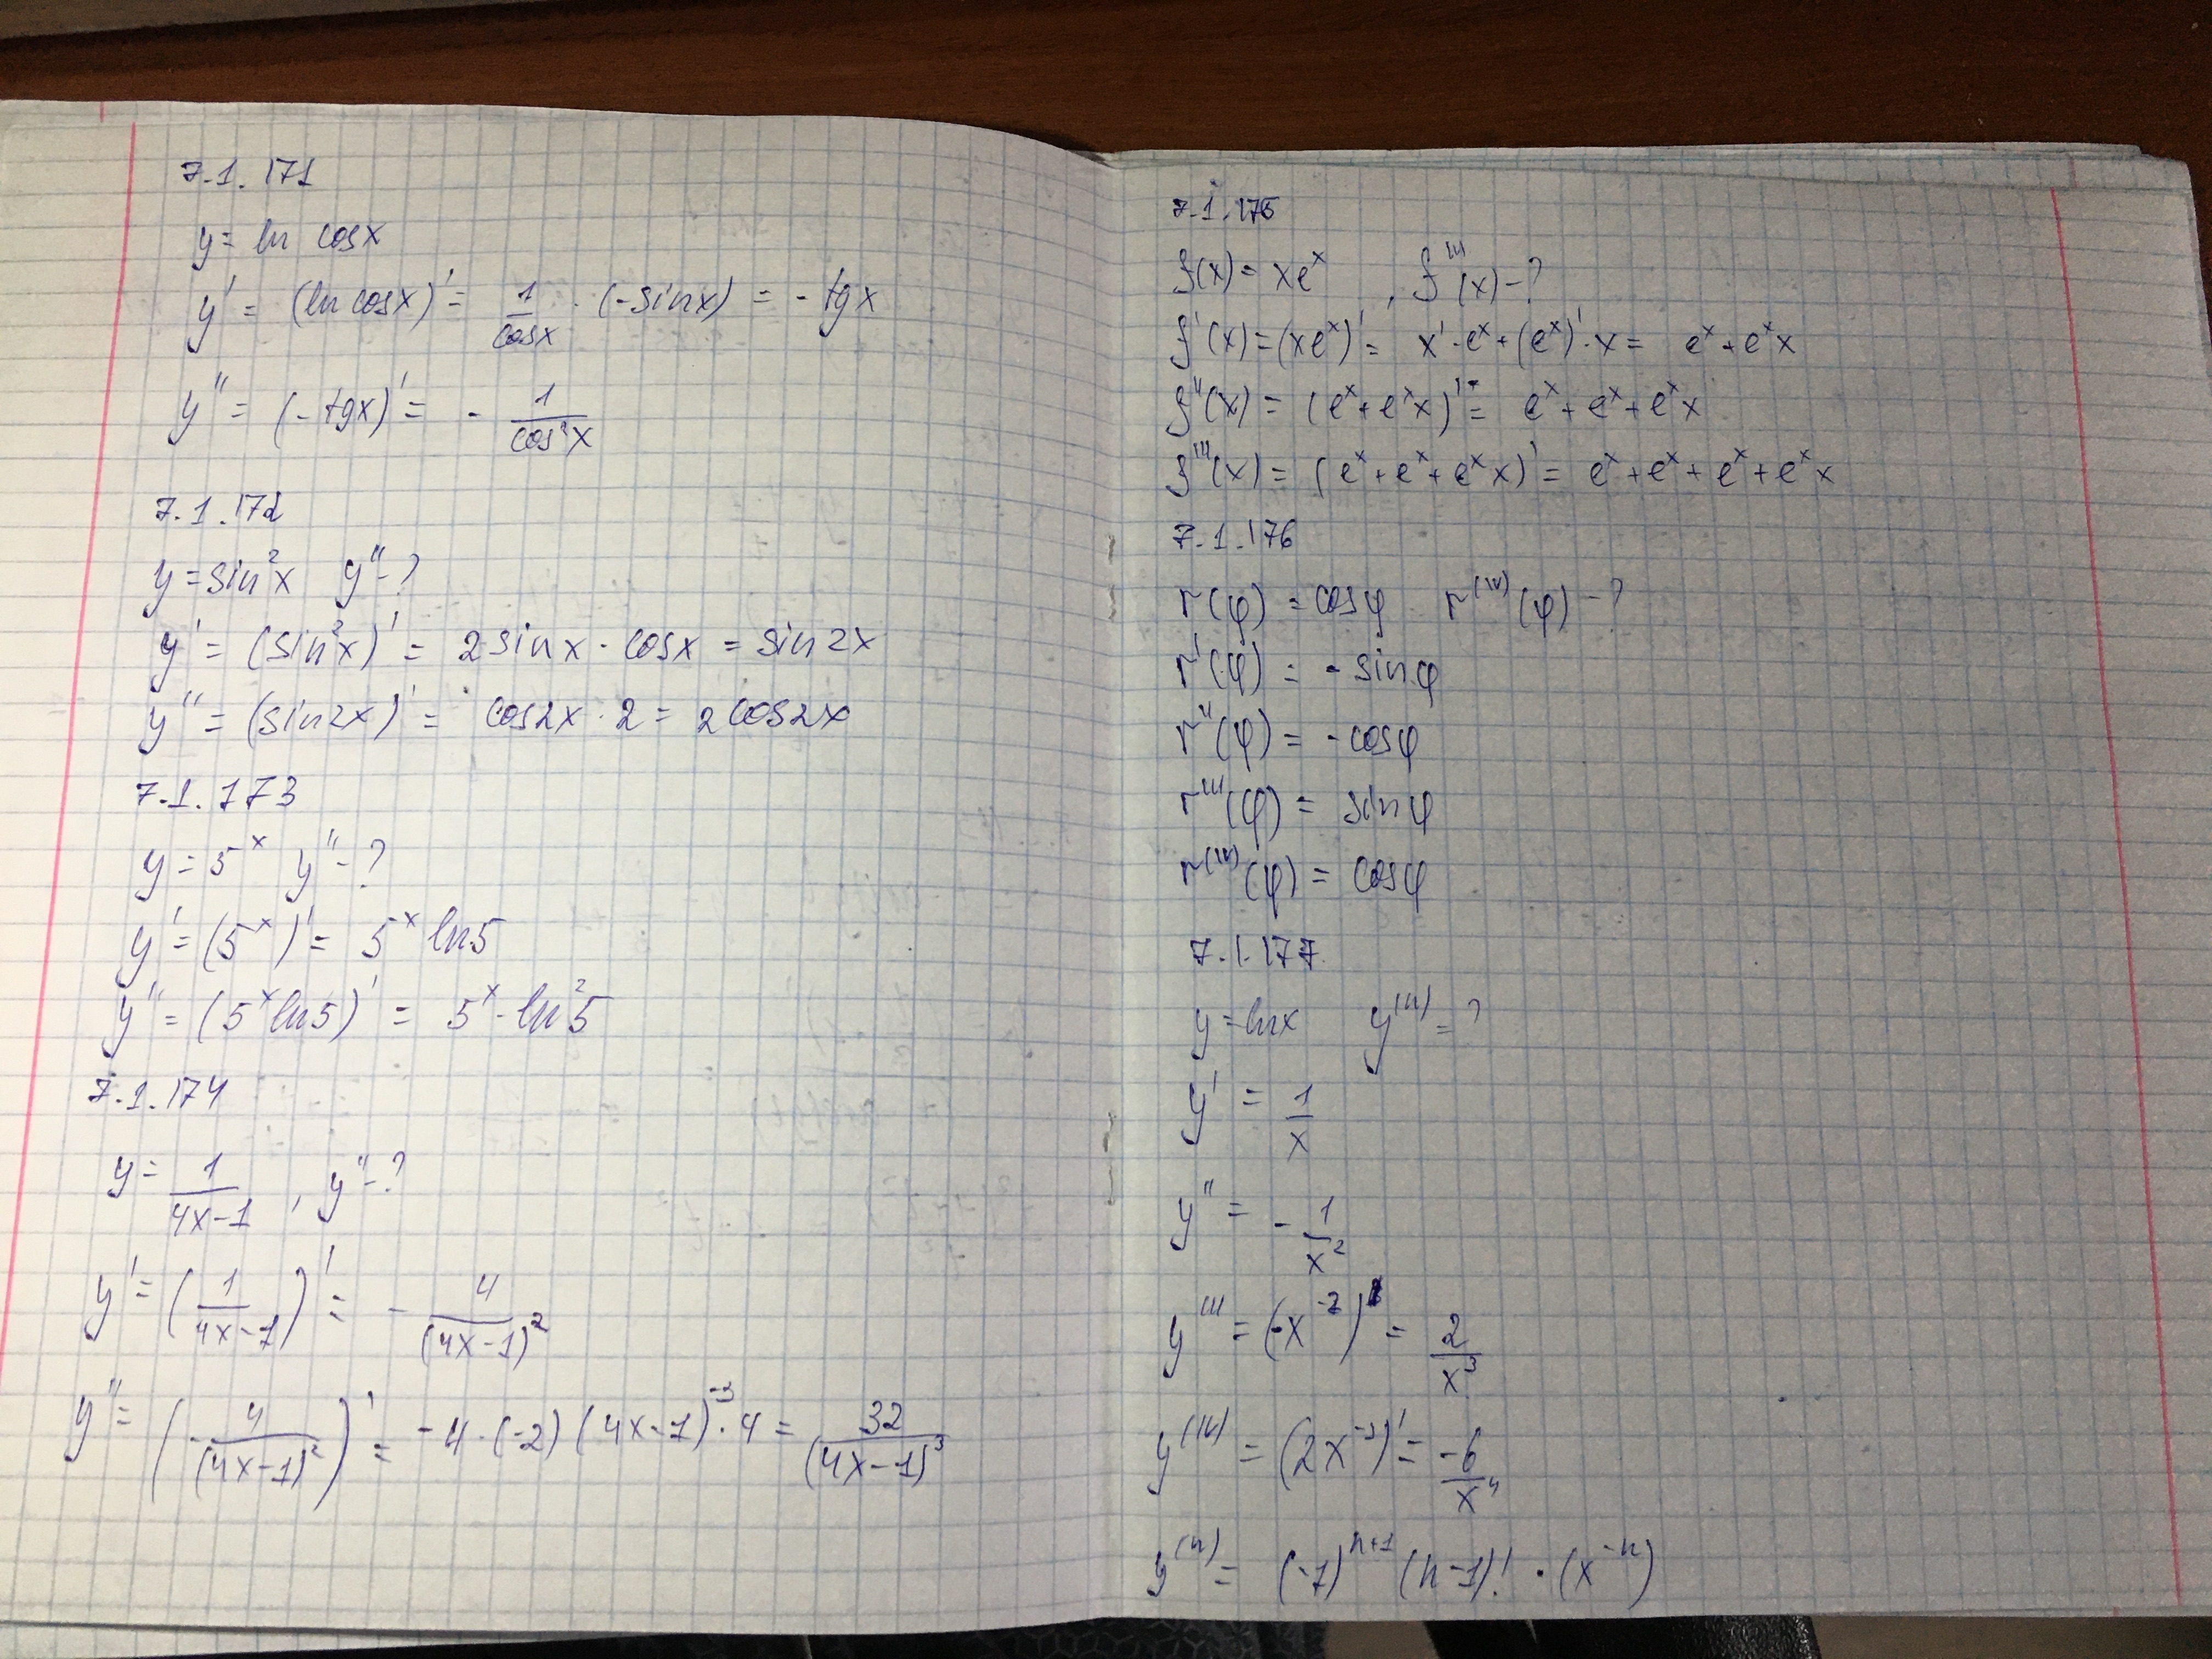 7.1.171
y = ln cosx
y' = (ln cosx)' = 1/cosx · (-sinx) = - tgx
y'' = (-tgx)' = - 1/cos²x
7.1.172
y = sin²x y'' - ?
y' = (sin²x)' = 2 sinx · cosx = sin2x
y'' = (sin2x)' = cos2x · 2 = 2cos2x
7.1.173
y = 5^x y'' - ?
y' = (5^x)' = 5^x ln5
y'' = (5^x ln5)' = 5^x · ln²5
7.1.174
y = 1/(4x-1) , y'' - ?
y' = (1/(4x-1))' = - 4/(4x-1)²
y'' = (- 4/(4x-1)²)' = -4·(-2)(4x-1)^-3 · 4 = 32/(4x-1)³
7.1.175
f(x) = xe^x , f'''(x) - ?
f'(x) = (xe^x)' = x'·e^x + (e^x)'·x = e^x + e^x x
f''(x) = (e^x + e^x x)' = e^x + e^x + e^x x
f'''(x) = (e^x + e^x + e^x x)' = e^x + e^x + e^x + e^x x
7.1.176
r(φ) = cosφ r^(IV)(φ) - ?
r'(φ) = - sinφ
r''(φ) = - cosφ
r'''(φ) = sinφ
r^(IV)(φ) = cosφ
7.1.177.
y = lnx y^(n) = ?
y' = 1/x
y'' = - 1/x²
y''' = (-x^-2)' = 2/x³
y^(IV) = (2x^-3)' = -6/x⁴
y^(n) = (-1)^(n+1) (n-1)! · (x^-n)